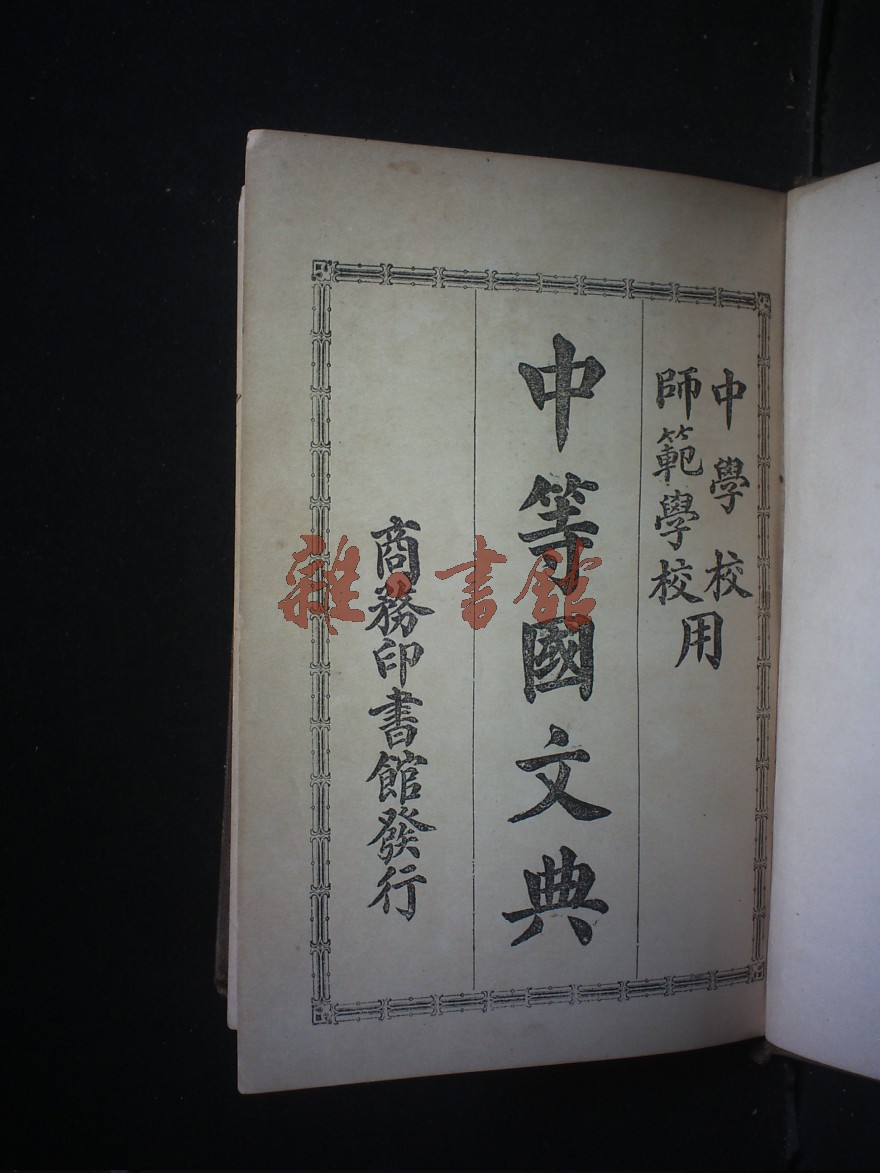 中學校
師範學校
用
中等國文典
商務印書館發行
雜·書館